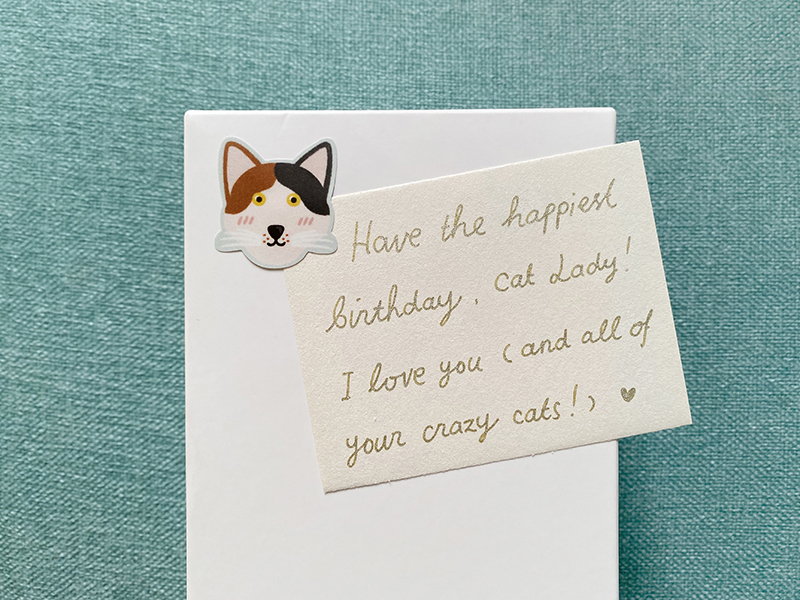 Have the happiest
birthday, Cat Lady!
I love you (and all of
your crazy cats!) ♥